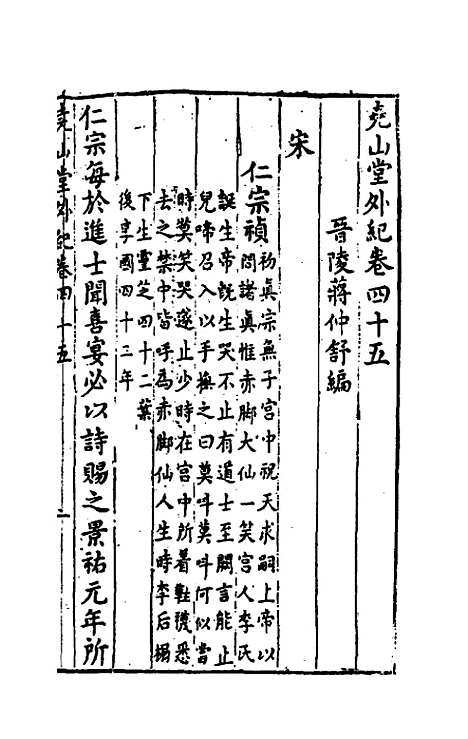 堯山堂外紀卷四十五
晉陵蔣仲舒編
宋
仁宗禎初真宗無子宮中祝天求嗣上帝以
問諸真惟赤脚大仙一笑宮人李氏
誕生帝旣生哭不止有道士至闕言能止
兒啼召入以手撫之曰莫呌莫呌何似當
時莫笑哭遂止少時在宮中所着鞋韈悉
去之禁中皆呼為赤脚仙人生時李后榻
下生靈芝四十二葉
後享國四十三年
仁宗每於進士聞喜宴必以詩賜之景祐元年所
堯山堂外紀卷四十五